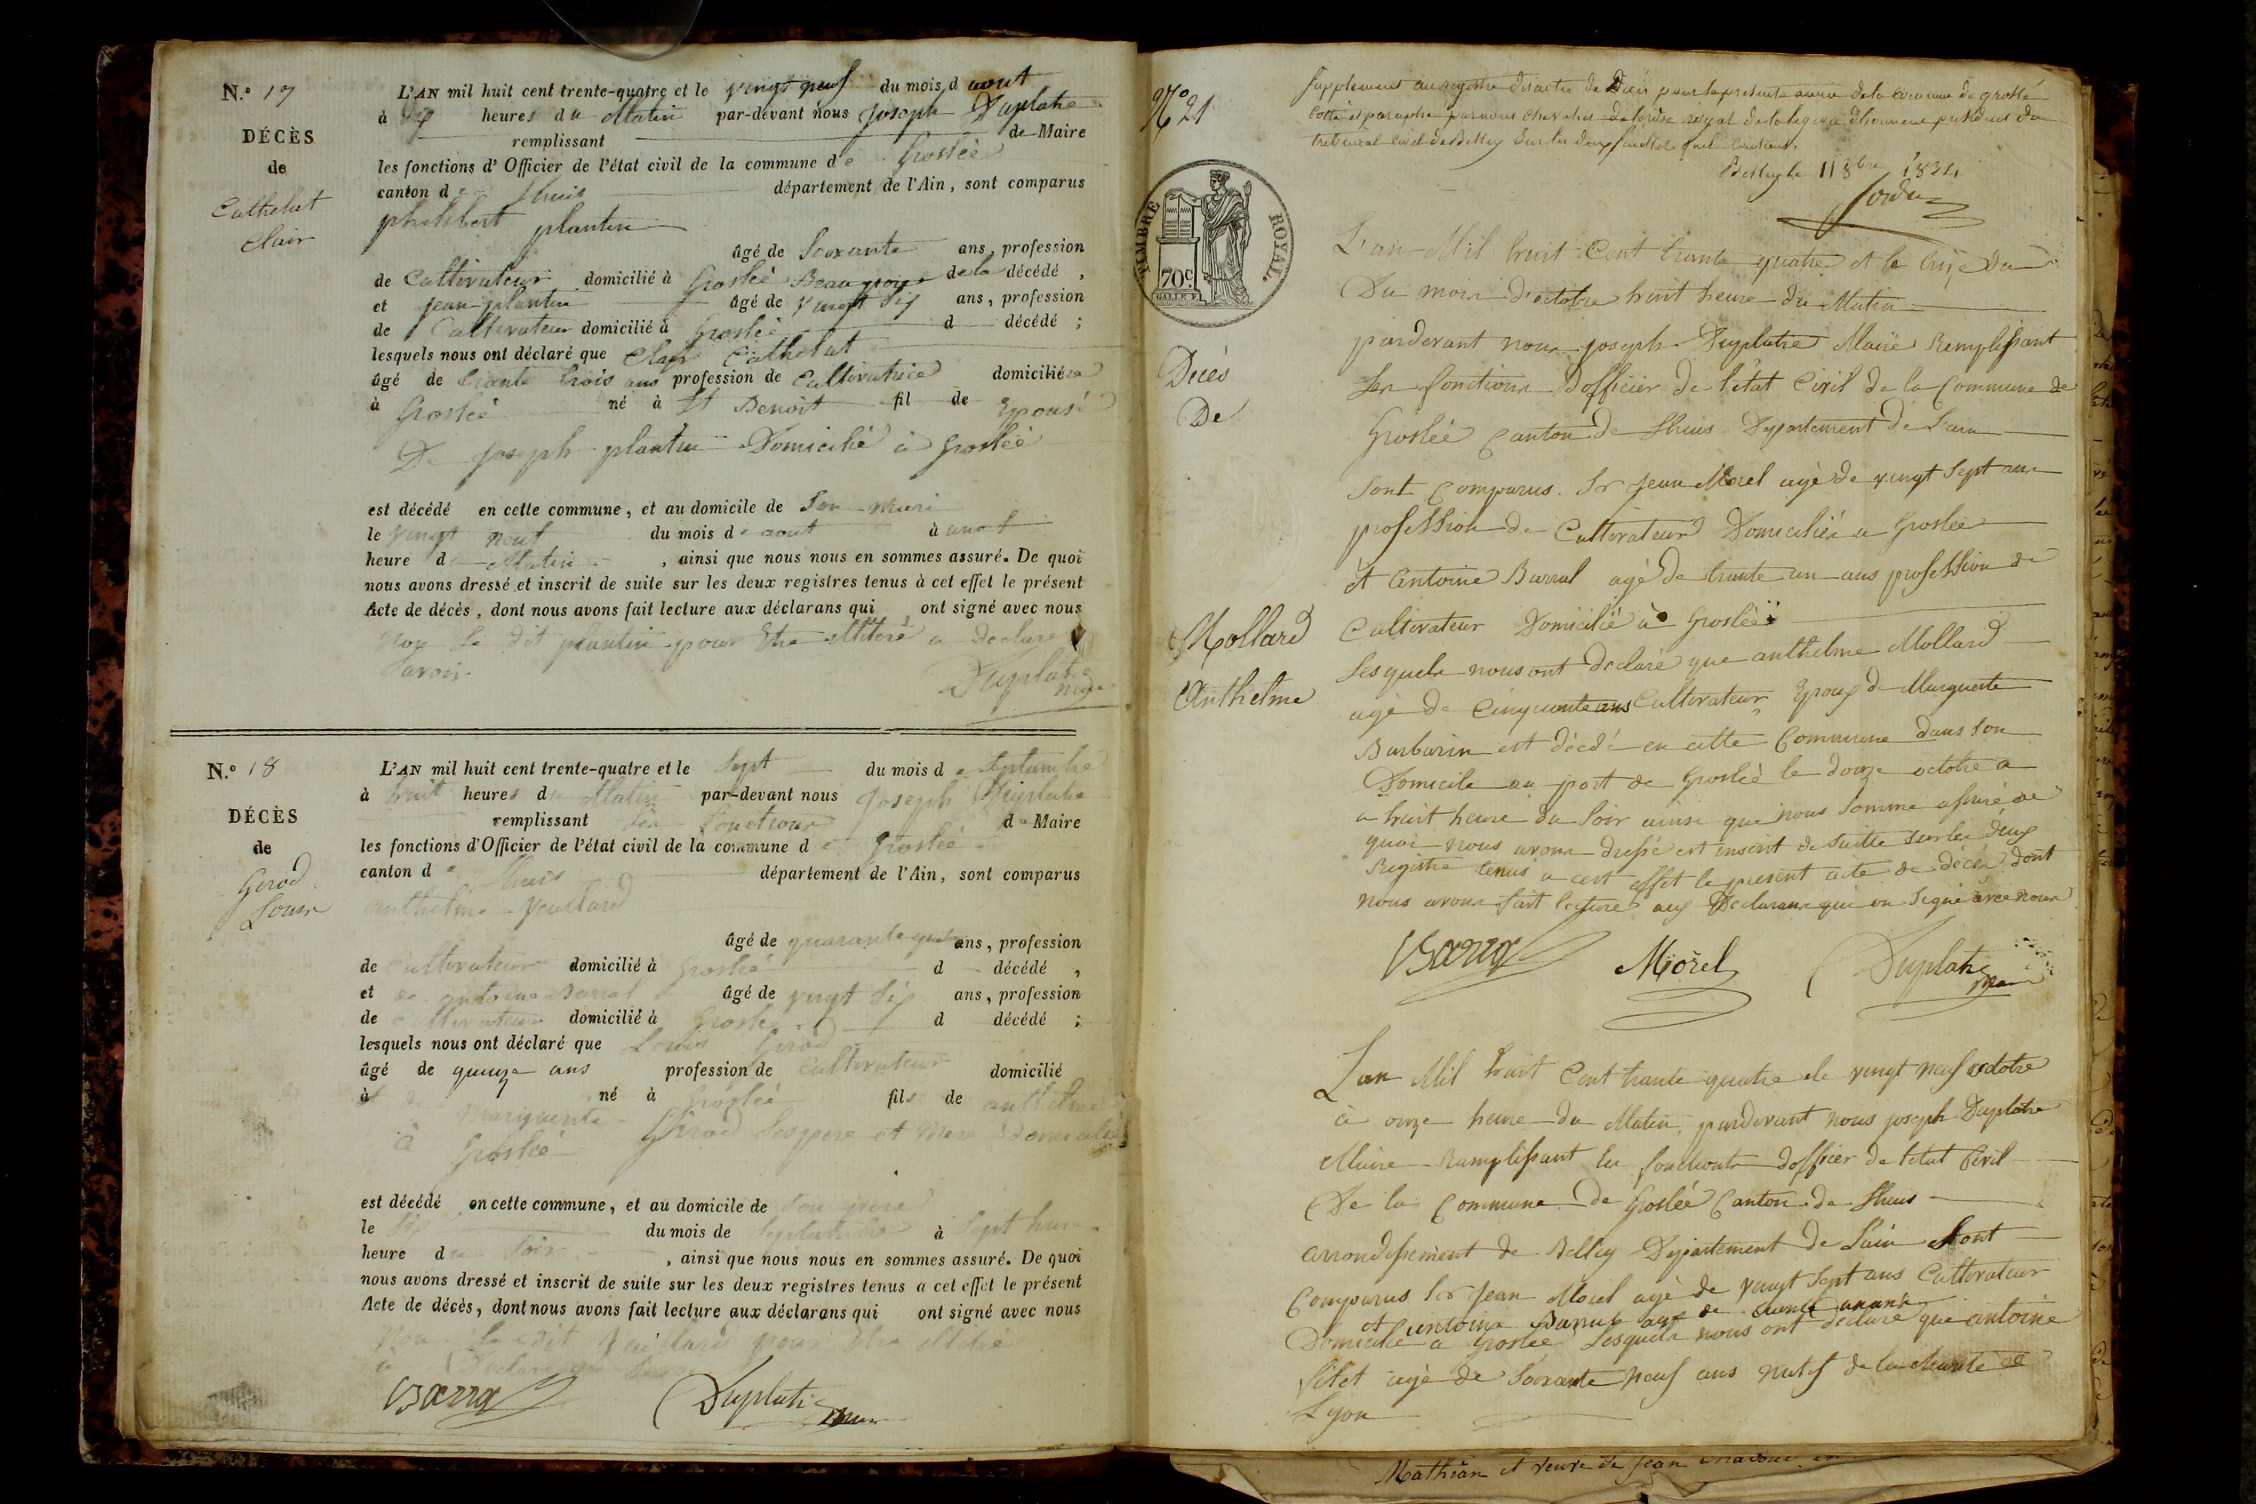 N.° 17
DÉCÈS
de
Cathelat
Clair
L'AN mil huit cent trente-quatre et le vingt neuf du mois d aout
à dix heures du Matin par-devant nous Joseph Duplatre
remplissant de Maire
les fonctions d'Officier de l'état civil de la commune de Groslée
canton de Lhuis département de l'Ain, sont comparus
philibert plantin
âgé de Soixante ans, profession
de Cultivateur domicilié à Groslée de la décédé,
et jean plantin âgé de vingt Six ans, profession
de Cultivateur domicilié à Groslée d décédé ;
lesquels nous ont déclaré que Clair Cathelat
âgé de trente trois ans profession de Cultivatrice domiciliée
à Groslée né à St Benoit fil de Epouse
De joseph plantin Domicilié à Groslée
est décédé en cette commune, et au domicile de Son mari
le vingt neuf du mois d aout à
heure d Matin, ainsi que nous nous en sommes assuré. De quoi
nous avons dressé et inscrit de suite sur les deux registres tenus à cet effet le présent
Acte de décès, dont nous avons fait lecture aux déclarans qui ont signé avec nous
non le dit plantin pour Etre illiteré a declaré
Savoir
Duplatre
maire
N.° 18
DÉCÈS
de
Gerod
Louis
L'AN mil huit cent trente-quatre et le Sept du mois de Septembre
à huit heures du Matin par-devant nous Joseph Duplatre
remplissant les fonctions de Maire
les fonctions d'Officier de l'état civil de la commune de Groslée
canton de Lhuis département de l'Ain, sont comparus
anthelme
âgé de quarante ans, profession
de Cultivateur domicilié à Groslée d décédé,
et antoine Barral âgé de vingt Six ans, profession
de Cultivateur domicilié à Groslée d décédé ;
lesquels nous ont déclaré que Louis Gerod
âgé de quinze ans profession de Cultivateur domicilié
à né à Groslée fils de anthelme
et de Marguerite Gerod Ses pere et Mere Domicilié
à Groslée
est décédé en cette commune, et au domicile de Son pere
le Six du mois de Septembre à Sept heure
heure du Soir, ainsi que nous nous en sommes assuré. De quoi
nous avons dressé et inscrit de suite sur les deux registres tenus a cet effet le présent
Acte de décès, dont nous avons fait lecture aux déclarans qui ont signé avec nous
Non le dit pour Etre illitéré
a Declaré
Barra
Duplatre
maire
N° 21
Supplement au registre des actes de Décès pour la presente année de la commune de groslé
Cotté et paraphé par nous Chevalier de l'ordre royal de la légion d'honneur président du
tribunal civil de Belley Sur les deux feuillets qu'il contient.
Belley le 11 8bre 1834
TIMBRE ROYAL
70c
Décés
De
Mollard
Anthelme
L'an Mil huit Cent trente quatre et le treize du
Du mois d'octobre huit heure du Matin
pardevant nous joseph Duplatre Maire Remplissant
les fonctions D'officier de l'état Civil de la Commune de
Groslée Canton de Lhuis Departement de L'ain
Sont Comparus Sr Jean Morel agé de vingt Sept ans
profession de Cultivateur Domicilié a Groslée
Et Antoine Barral agé de trente un ans profession de
Cultivateur Domicilié à Groslée
Lesquels nous ont déclaré que anthelme Mollard
agé de Cinquante ans Cultivateur Epoux de Marguerite
Barbarin est décédé en cette Commune dans son
Domicile au port de Groslée le douze octobre a
a huit heure du Soir ainsi que nous Somme assuré de
quoi nous avons dressé et inscrit de suitte sur les deux
Registre tenus a cet effet le present acte de décés dont
nous avons fait lecture aux Declarans qui on Signé avec nous
Barra
Morel
Duplatre
maire
L'an Mil huit Cent trente quatre et le vingt neuf octobre
à onze heure du Matin, pardevant nous joseph Duplatre
Maire Ramplissant les fonctions d'officier de l'etat Civil
De la Commune de Groslée Canton de Lhuis
arrondissement de Belley Departement de L'ain Sont
Comparus Sr Jean Morel agé de vingt Sept ans Cultivateur
et antoine Barral agé de trente un ans
Domicilié a Groslée Lesquels nous ont déclaré que antoine
agé de Soixante neuf ans natif de la charité de
Lyon
Mathian et veuve de Jean